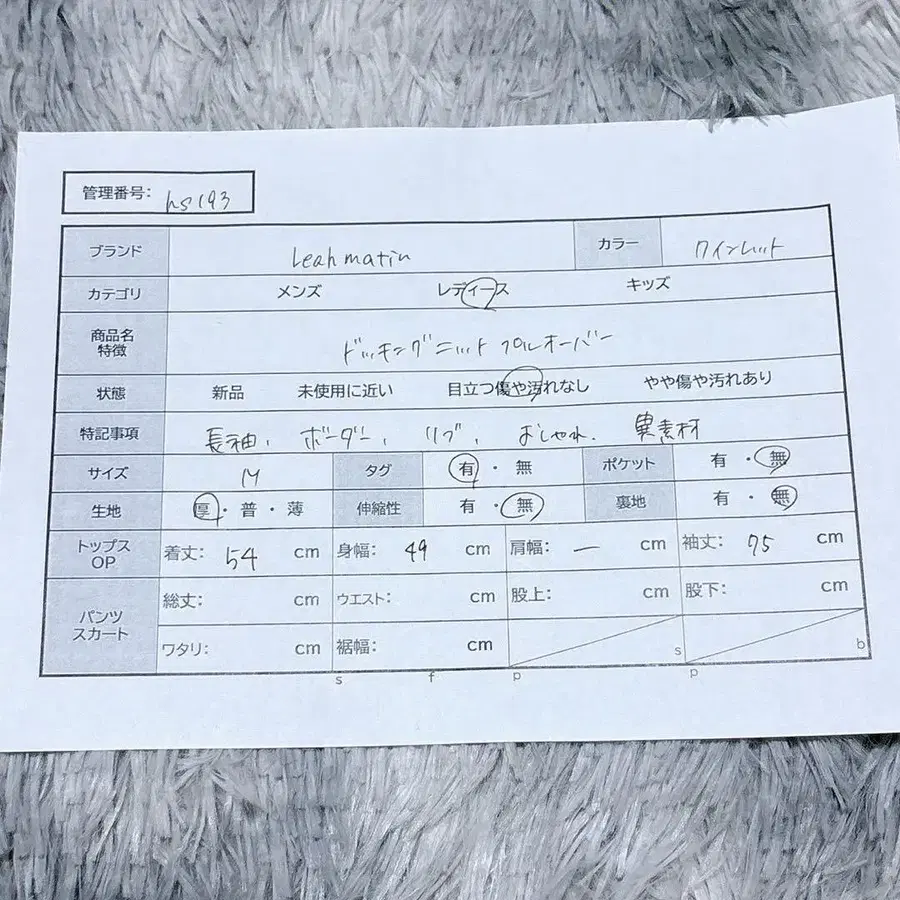 管理番号: hs193
ブランド Leah matin カラー ワインレット
カテゴリ メンズ レディース キッズ
商品名 特徴 ドッキングニットプルオーバー
状態 新品 未使用に近い 目立つ傷や汚れなし やや傷や汚れあり
特記事項 長袖、ボーダー、リブ、おしゃれ、異素材
サイズ M タグ 有・無 ポケット 有・無
生地 厚・普・薄 伸縮性 有・無 裏地 有・無
トップス OP 着丈: 54 cm 身幅: 49 cm 肩幅: ― cm 袖丈: 75 cm
パンツ スカート 総丈: cm ウエスト: cm 股上: cm 股下: cm
ワタリ: cm 裾幅: cm s b
s f p p